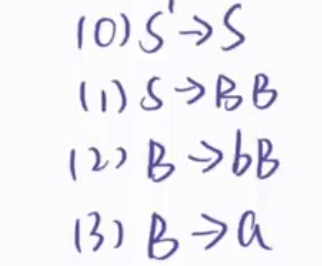 (0) S' → S
(1) S → BB
(2) B → bB
(3) B → a